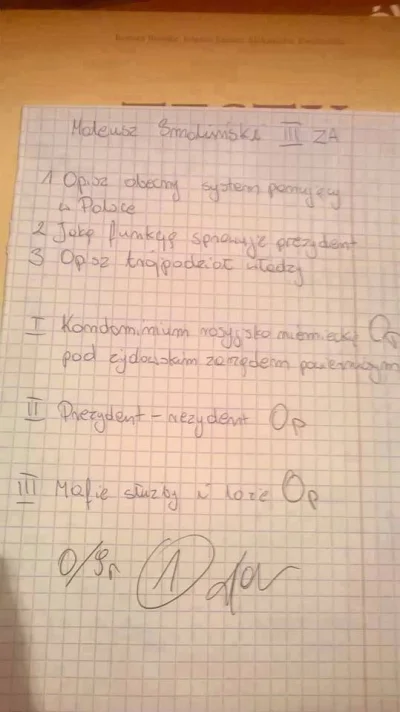 Mateusz Smoliński III ZA
1 Opisz obecny system panujący
w Polsce
2 Jaką funkcję sprawuje prezydent
3 Opisz trójpodział władzy
I Kondominium rosyjsko niemieckie Op
pod żydowskim zarządem powierniczym
II Prezydent - rezydent Op
III Mafie służby i loże Op
0/9p 1